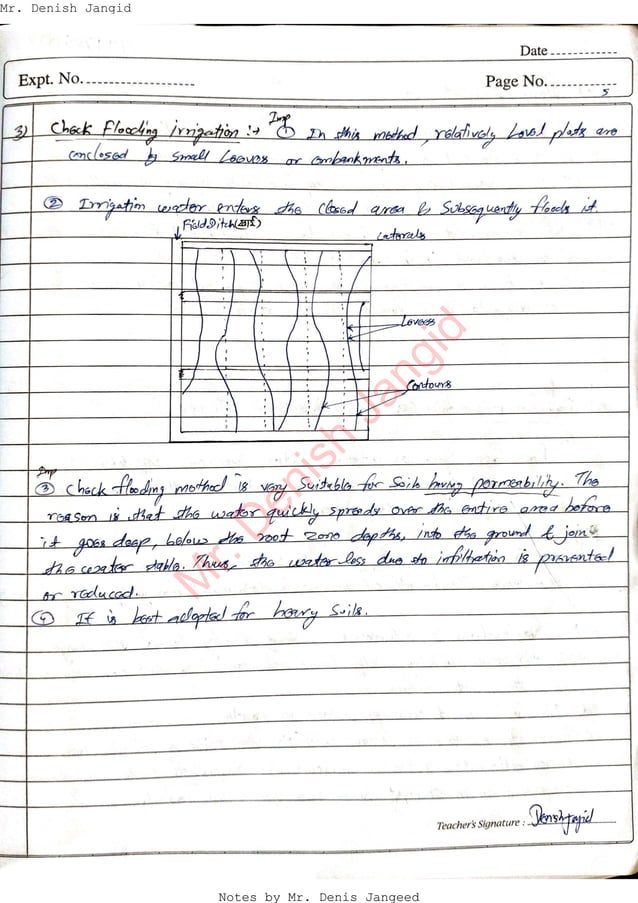 Mr. Denish Jangid
Date
Expt. No.
Page No.
5
3) Check Flooding irrigation :→ Imp ① In this method, relatively Level plots are
enclosed by small Levees or embankments.
② Irrigation water enters the closed area & Subsequently floods it.
Field Ditch (खाई)
Laterals
Levees
Contours
Mr. Denish Jangid
Imp
③ Check flooding method is very Suitable for Soils having permeability. The
reason is that the water quickly spreads over the entire area before
it goes deep, below the root zone depths, into the ground & join
the water table. Thus, the water loss due to infiltration is prevented
or reduced.
④ It is best adopted for heavy Soils.
Teacher's Signature : Denish Jangid
Notes by Mr. Denis Jangeed